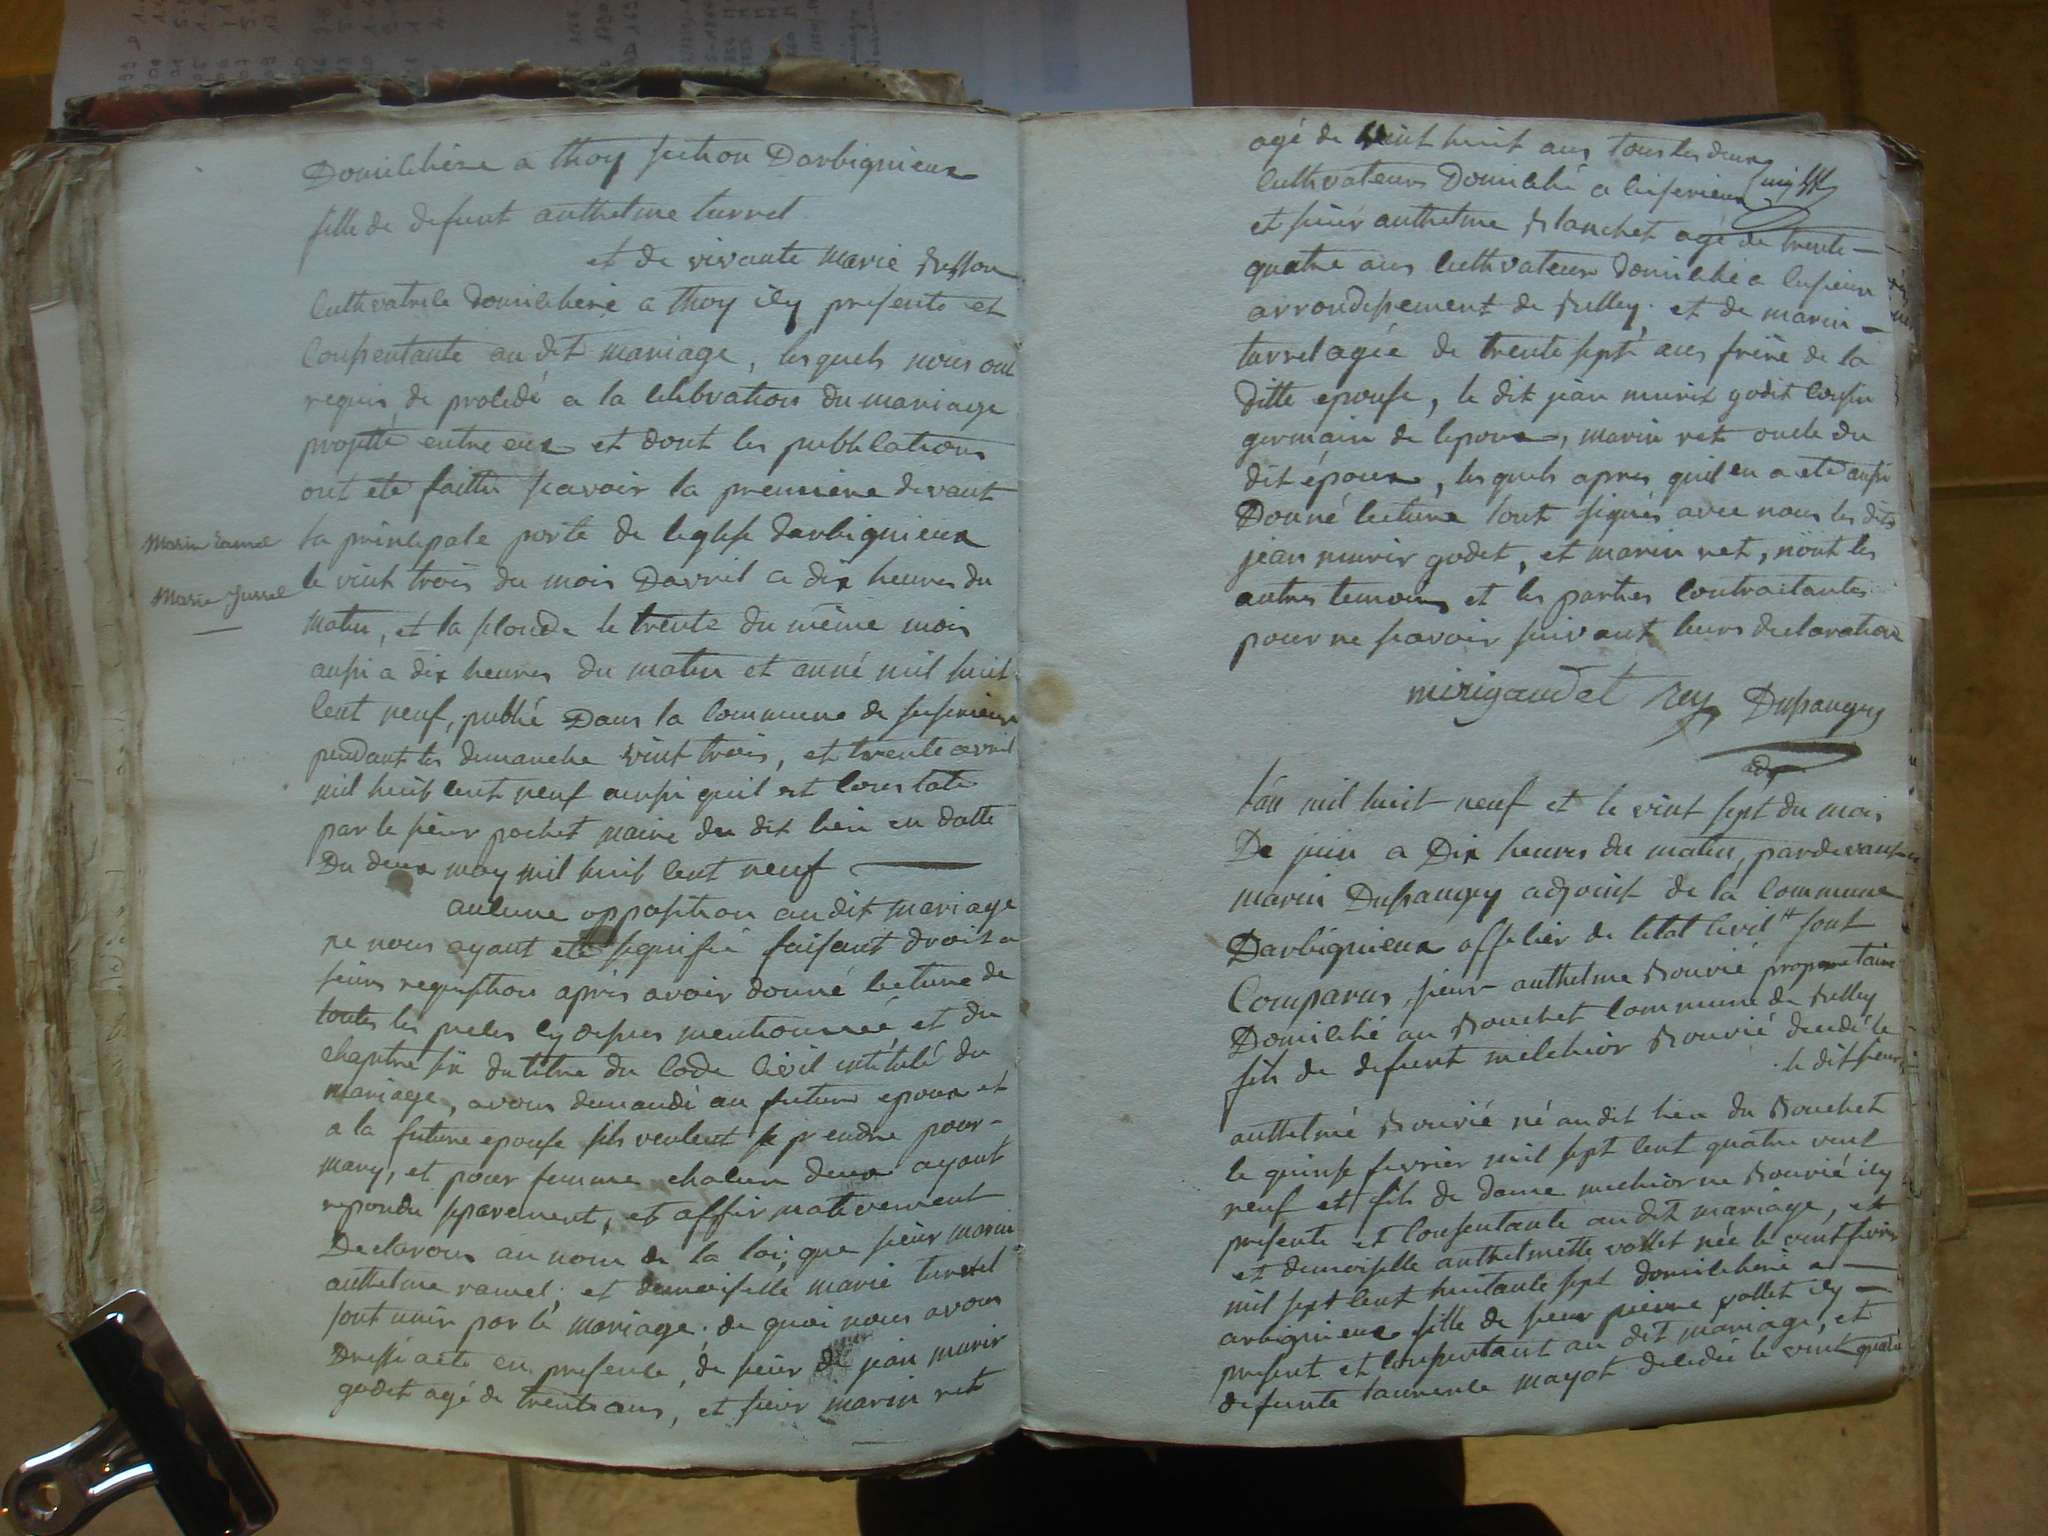 Domicilière a thoy section Darbignieux
fille de defunt anthelme turrel
et de vivante marie Besson
Cultivatrice domicilière a thoy icy presente et
Consentante au dit mariage, lesquels nous ont
requis de procedé a la celebration du mariage
projetté entre eux et dont les publications
ont eté faittes scavoir la premiere devant
la principale porte de leglise darbignieux
Marin Ramel
le vint trois du mois Davril a dix heures du
Marie Turrel
matin, et la seconde le trente du même mois
aussi a dix heures du matin et anné mil huit
Cent neuf, publié Dans la Commune de
pendant les dimanche vint trois, et trente avril
mil huit cent neuf ainsi quil est Constaté
par le sieur pochet maire du dit lieu en datte
Du deux may mil huit Cent neuf
aucune opposition au dit mariage
ne nous ayant eté signifié faisant droit a
leurs requisition après avoir donné lecture de
toutes les pieces cy dessus mentionnée et du
chapitre six du titre du Code Civil intitulé du
mariage, avons demandé au futur epoux et
a la future epouse sils veulent se prendre pour-
mary, et pour femme chacun deux ayant
repondu separement, et affirmativement
Declarons au nom de la loi, que sieur marin
anthelme ramel, et demoiselle marie turrel
sont unir par le mariage. de quoi nous avons
Dressé acte en presence, de sieur jean murir
godet agé de trente ans, et sieur marin ret
agé de vint huit ans tous les deux
Cultivateurs Domicilié a
et sieur anthelme Blanchet agé de trente-
quatre ans Cultivateur domicilié a
arrondissement de Belley. et de marin-
turrel agée de trente sept ans frère de la
ditte epouse, le dit jean murix godit Cousin
germain de lepoux, marin ret oncle du
dit époux, lesquels apres quil en a eté aussi
Donné lecture sont signés avec nous les dits
jean murir godet, et marin ret, nont les
autres temoins et les parties Contractantes
pour ne scavoir suivant leurs declaration
mirigaudet rey Dupaugey
adj
lán mil huit neuf et le vint sept du mois
De juin a Dix heures du matin, pardevant
marin Dupaugey adjoint de la Commune
Darbignieux officier de letat Civil sont
Comparus, sieur anthelme Bouvié proprietaire
Domicilié au Bouchet Commune de Belley
fils de defunt melchior Bouvié decedé le
le dit sieur
anthelmé Bouvié né au dit lieu du Bouchet
le quinse fevrier mil sept Cent quatre vint
neuf et fils de dame melchiorne Bouvié icy
presente et Consentante au dit mariage, et
et demoiselle anthelmette vollet née le vint
mil sept Cent huitante sept domicilière a
arbignieux fille de sieur pierre vollet icy
present et Consentant au dit mariage, et
defunte laurence mayot decedée le vint quatre